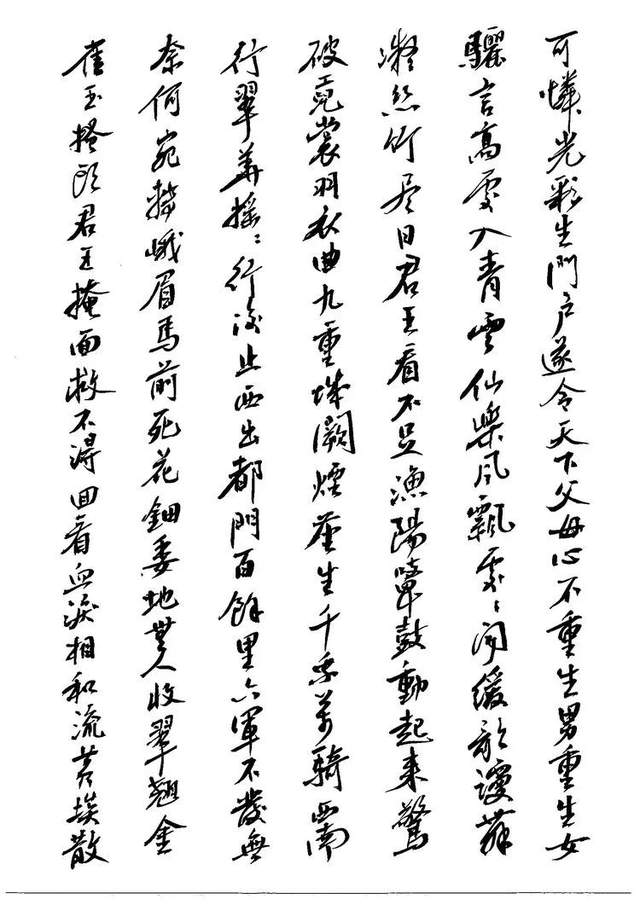 可憐光彩生門户遂令天下父母心不重生男重生女
驪宮高處入青雲仙樂風飄處〻聞緩歌謾舞
凝絲竹尽日君王看不足漁陽鼙鼓動起来驚
破霓裳羽衣曲九重城闕煙塵生千乘萬騎西南
行翠華摇〻行復止西出都門百餘里六軍不發無
奈何宛轉峨眉馬前死花鈿委地無人收翠翹金
雀玉搔頭君王掩面救不得回看血淚相和流黄埃散